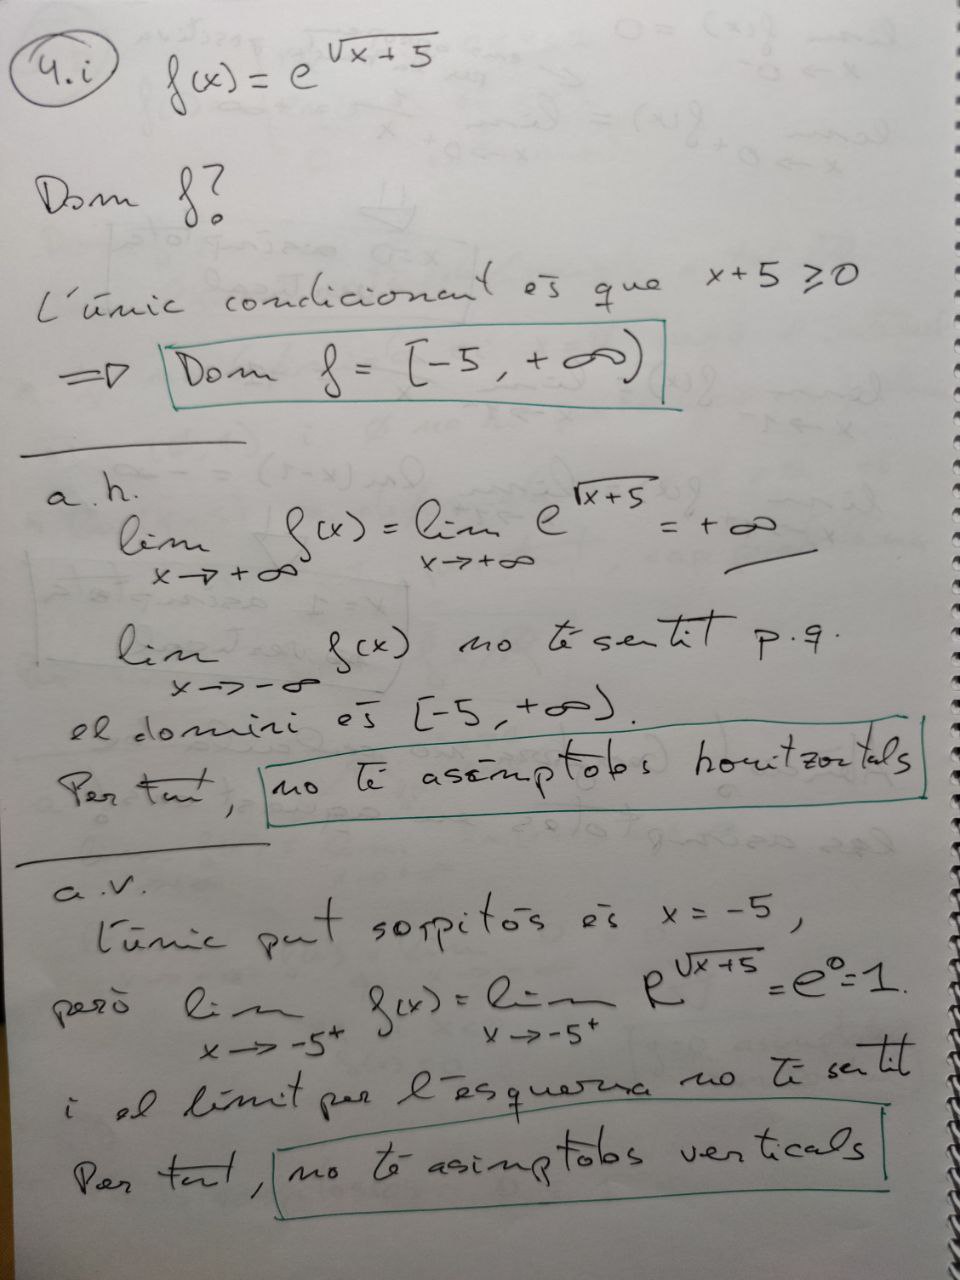 4.i f(x) = e^√(x+5)
Dom f?
L'únic condicionant és que x+5 ≥ 0
⇒ Dom f = [-5, +∞)
a.h.
lim x→+∞ f(x) = lim x→+∞ e^√(x+5) = +∞
lim x→-∞ f(x) no té sentit p.q.
el domini és [-5, +∞).
Per tant, no té asímptotes horitzontals
a.v.
L'únic punt sospitós és x = -5,
però lim x→-5⁺ f(x) = lim x→-5⁺ e^√(x+5) = e⁰ = 1.
i el límit per l'esquerra no té sentit
Per tant, no té asímptotes verticals